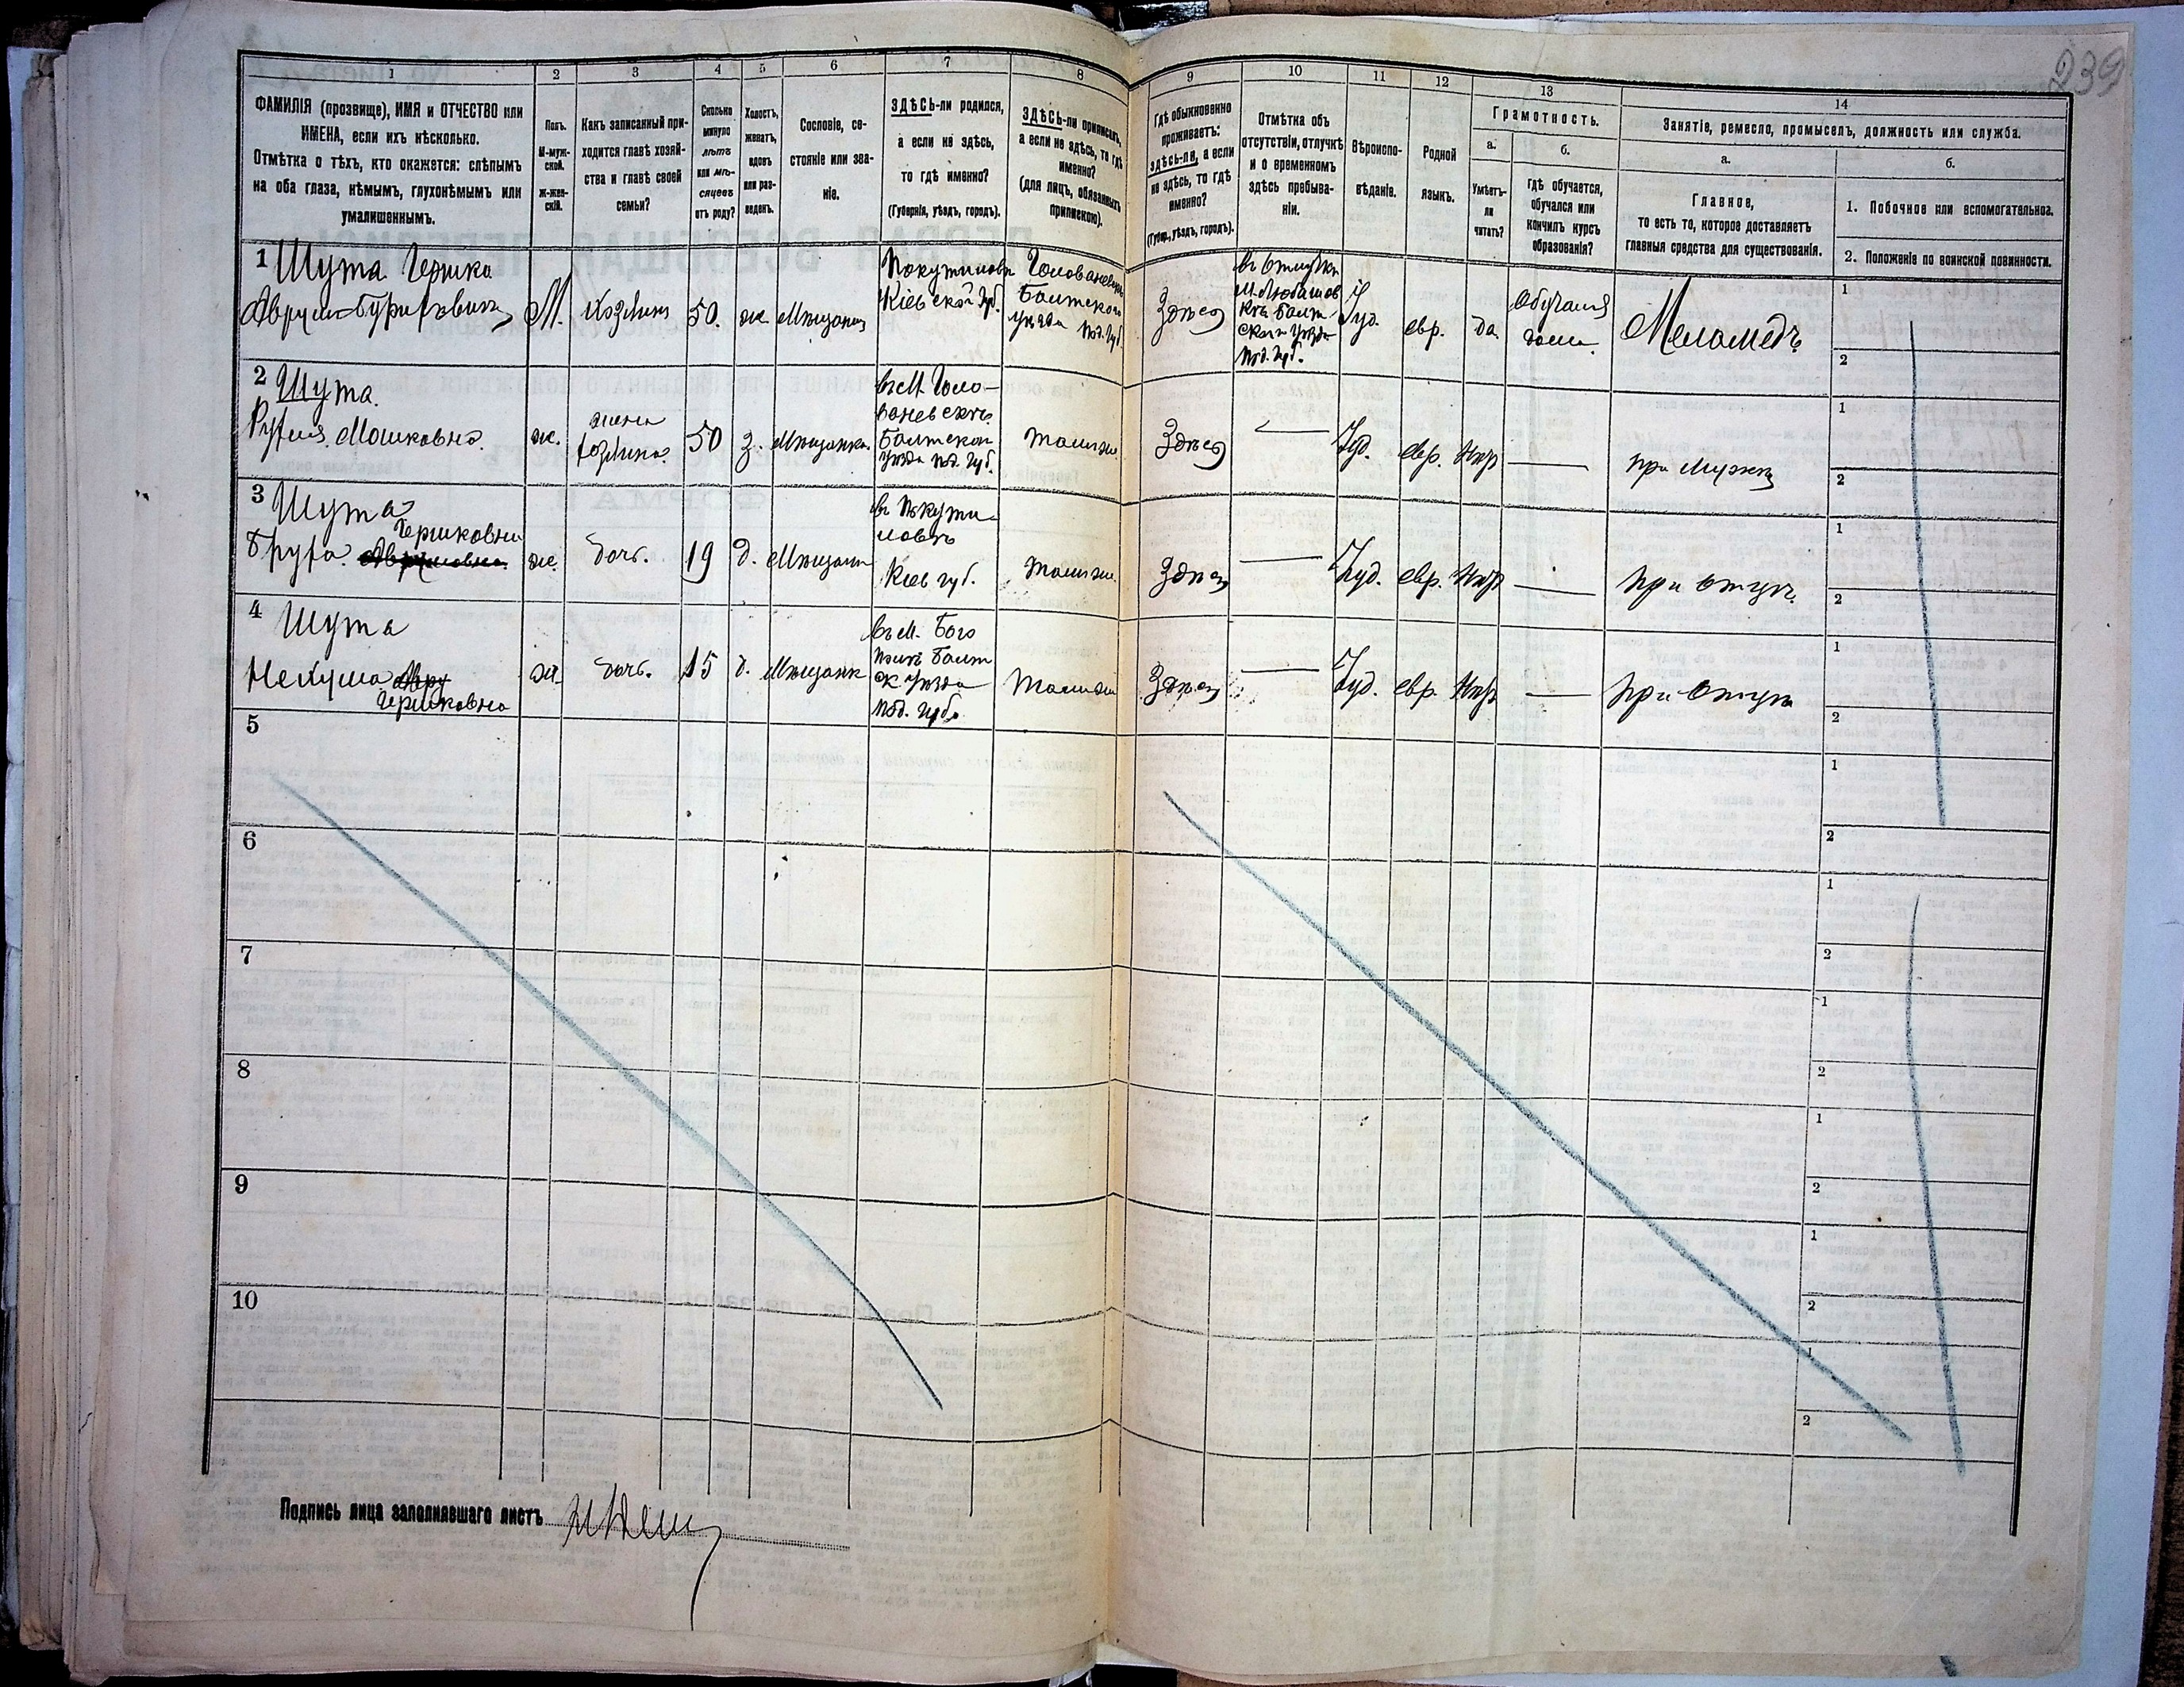 239
1
2
3
4
5
6
7
8
9
10
11
12
13
14
ФАМИЛІЯ (прозвище), ИМЯ и ОТЧЕСТВО или
ИМЕНА, если ихъ нѣсколько.
Отмѣтка о тѣхъ, кто окажется: слѣпымъ
на оба глаза, нѣмымъ, глухонѣмымъ или
умалишеннымъ.
Полъ.
М-муж-
ской.
Ж-жен-
скій.
Какъ записанный при-
ходится главѣ хозяй-
ства и главѣ своей
семьи?
Сколько
минуло
лѣтъ
или мѣ-
сяцевъ
отъ роду?
Холостъ,
женатъ,
вдовъ
или раз-
веденъ.
Сословіе, со-
стояніе или зва-
ніе.
ЗДѢСЬ-ли родился,
а если не здѣсь,
то гдѣ именно?
(Губернія, уѣздъ, городъ).
ЗДѢСЬ-ли приписанъ,
а если не здѣсь, то гдѣ
именно?
(для лицъ, обязанныхъ
припискою).
Гдѣ обыкновенно
проживаетъ:
здѣсь-ли, а если
не здѣсь, то гдѣ
именно?
(Губер., уѣздъ, городъ).
Отмѣтка объ
отсутствіи, отлучкѣ
и о временномъ
здѣсь пребыва-
ніи.
Вѣроиспо-
вѣданіе.
Родной
языкъ.
Грамотность.
а.
Умѣетъ-
ли
читать?
б.
Гдѣ обучается,
обучался или
кончилъ курсъ
образованія?
Занятіе, ремесло, промыселъ, должность или служба.
а.
Главное,
то есть то, которое доставляетъ
главныя средства для существованія.
б.
1. Побочное или вспомогательное.
2. Положеніе по воинской повинности.
1 Шута Гершко
М.
Хозяинъ
50.
ж
Мѣщанинъ
Кіевской губ.
Балтского
уѣзда Под. губ.
Здѣсь
Балт-
ского уѣзда
Под. губ.
Іуд.
евр.
да
дома
Меламедъ
1
2
2 Шута.
Мошковна.
ж.
жена
хозяина.
50
з.
Мѣщанка.
въ М. Голо-
ваневскѣ
Балтскаго
уѣзда Под. губ.
тамъ же
Здѣсь
—
Іуд.
евр.
Нѣтъ
—
при мужѣ
1
2
3 Шута
Гершковна
ж.
дочь.
19
д.
въ Покути-
ловѣ
Кіев губ.
тамъ же
Здѣсь
—
Іуд.
евр.
Нѣтъ
—
при отцѣ.
1
2
4 Шута
Нехума
Гершковна
ж
дочь.
15
д.
Мѣщанк
въ М. Бого
поли Балт
ск уѣзда
Под. губ.
тамъ же
Здѣсь
—
Іуд.
евр.
Нѣтъ
—
при отцѣ
1
2
5
1
2
6
1
2
7
1
2
8
1
2
9
1
2
10
1
2
Подпись лица заполнявшаго листъ